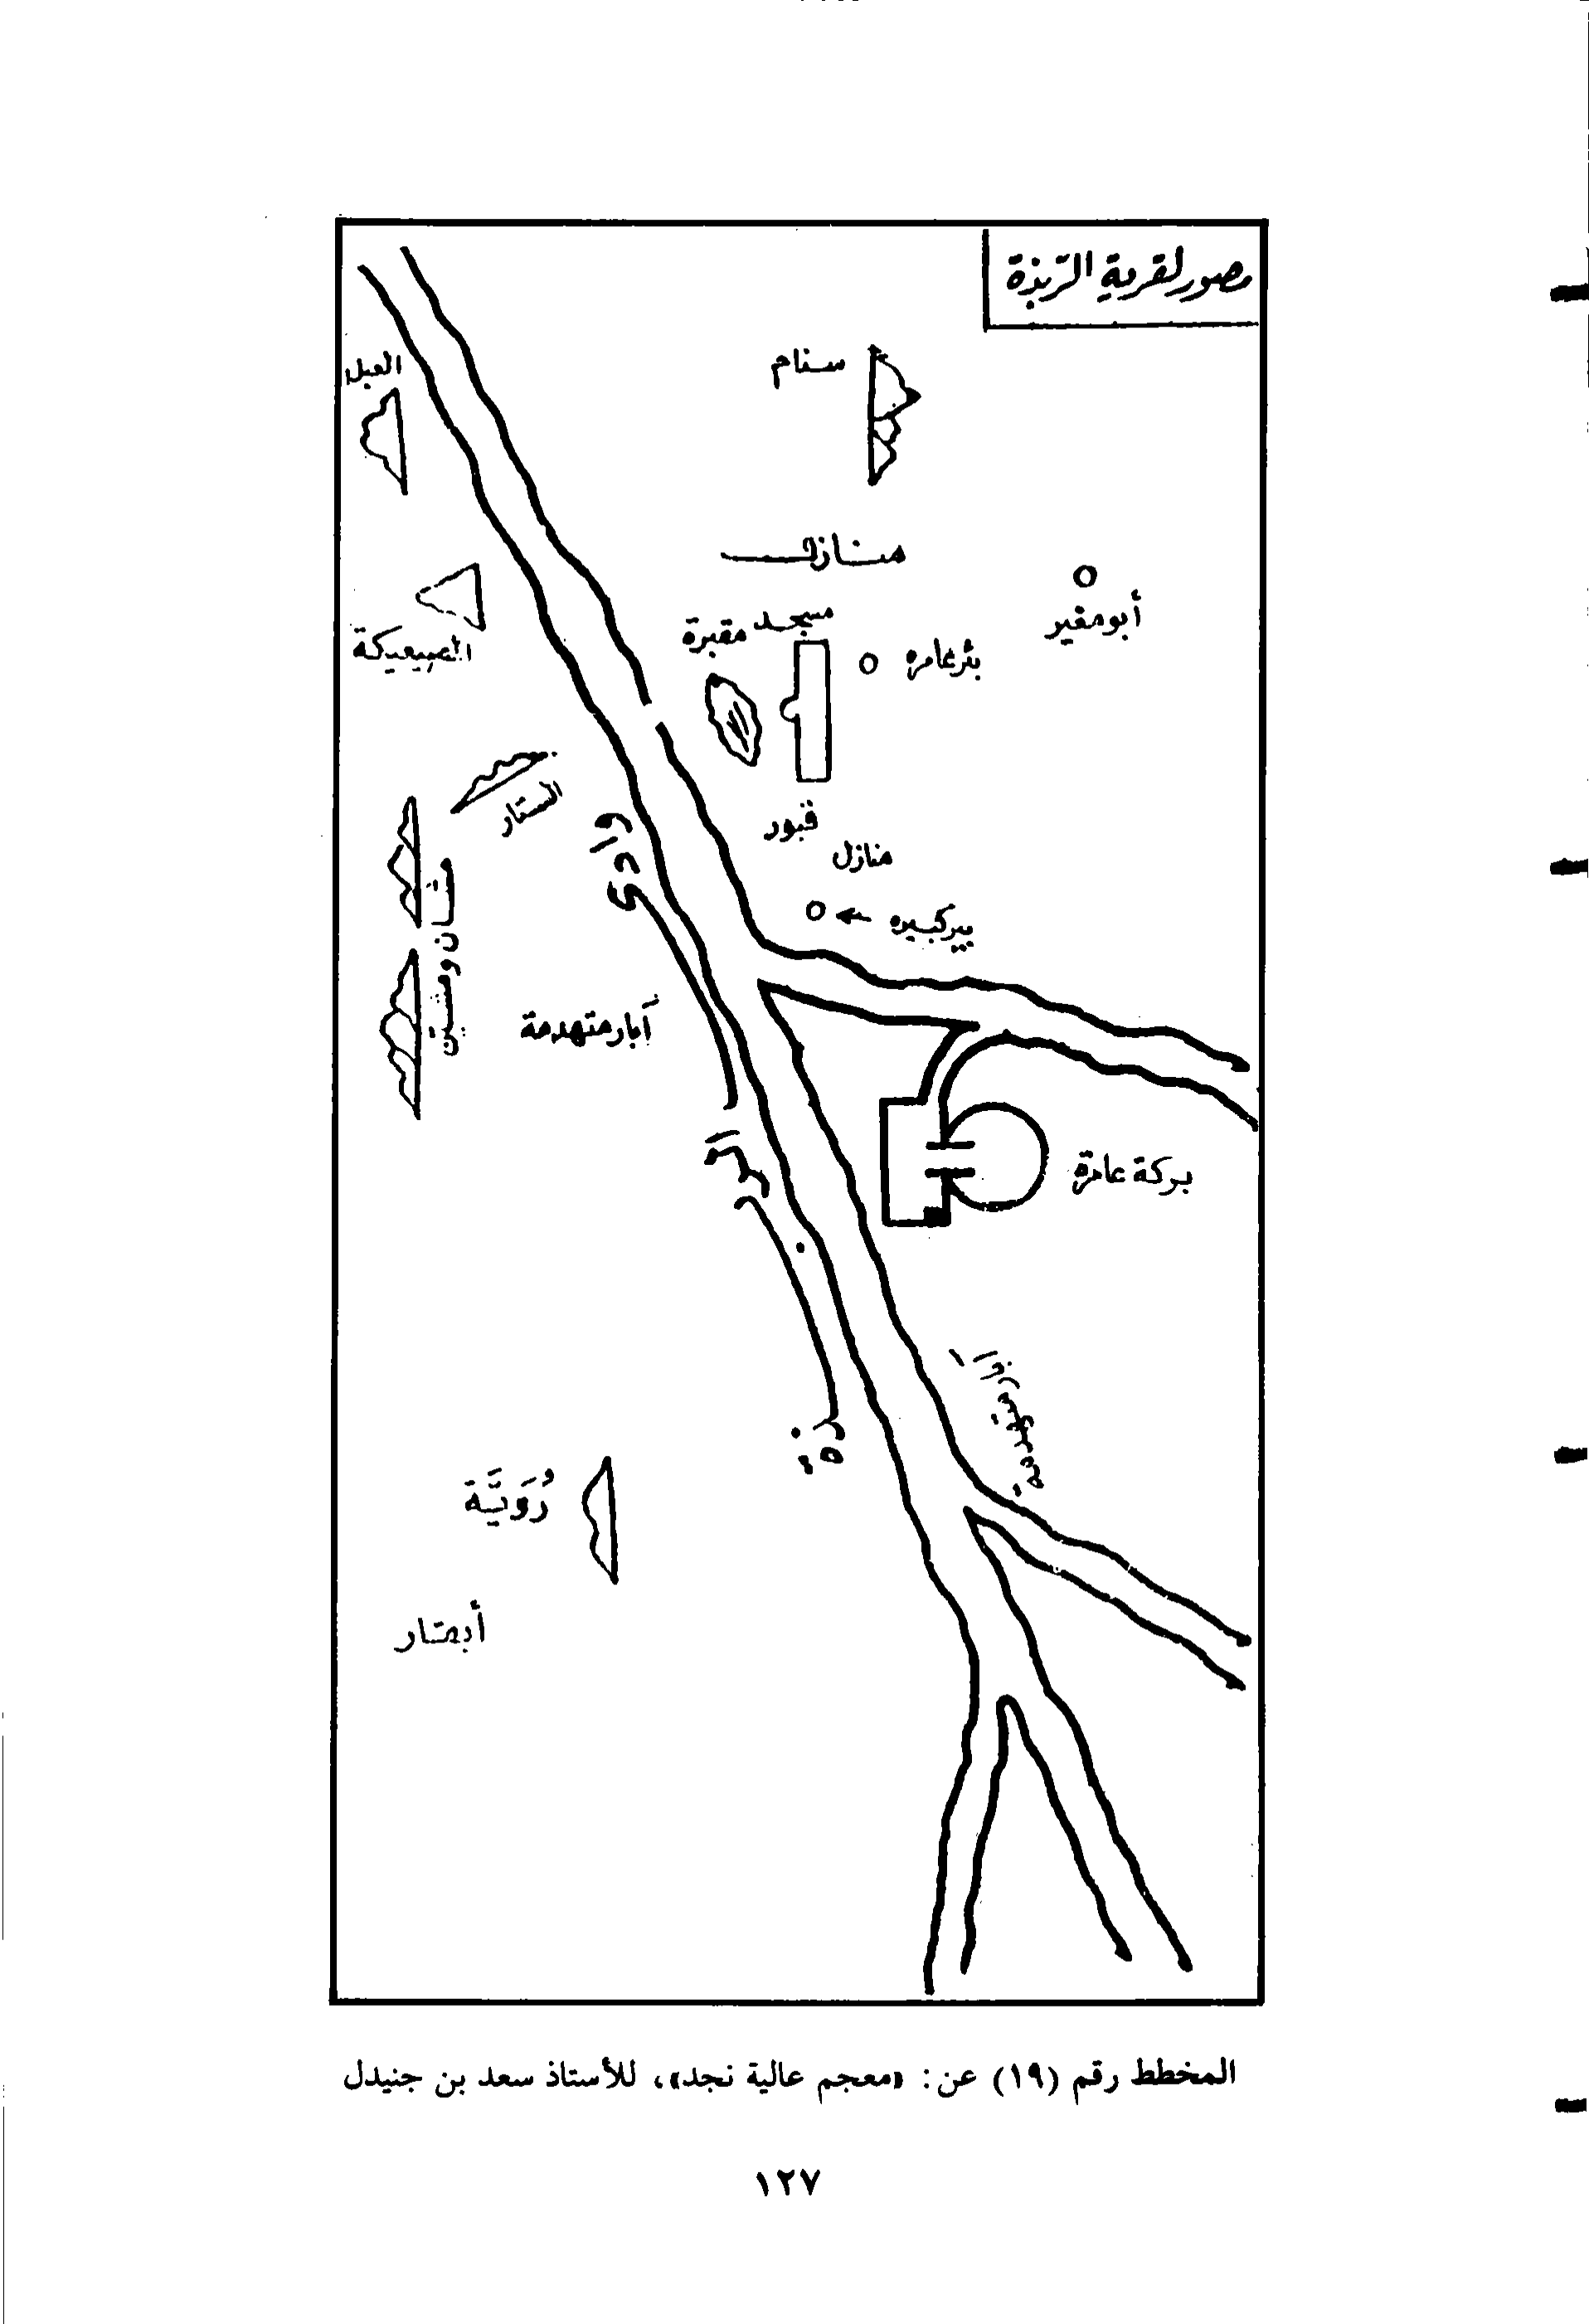 مصور لقرية الربذة
سنام
العبلا
منازل
أبو مغير
مسجد
مقبرة
بئر عامره
الصعيبيكة
الستار
قبور
منازل
وادي الربذة
بير كبيره
مشان ومشين
آبار متهدمة
بركة عامرة
آبار متهدمة
رُوَيَّة
المخطط رقم (١٩) عن: «معجم عالية نجد»، للأستاذ سعد بن جنيدل
١٢٧